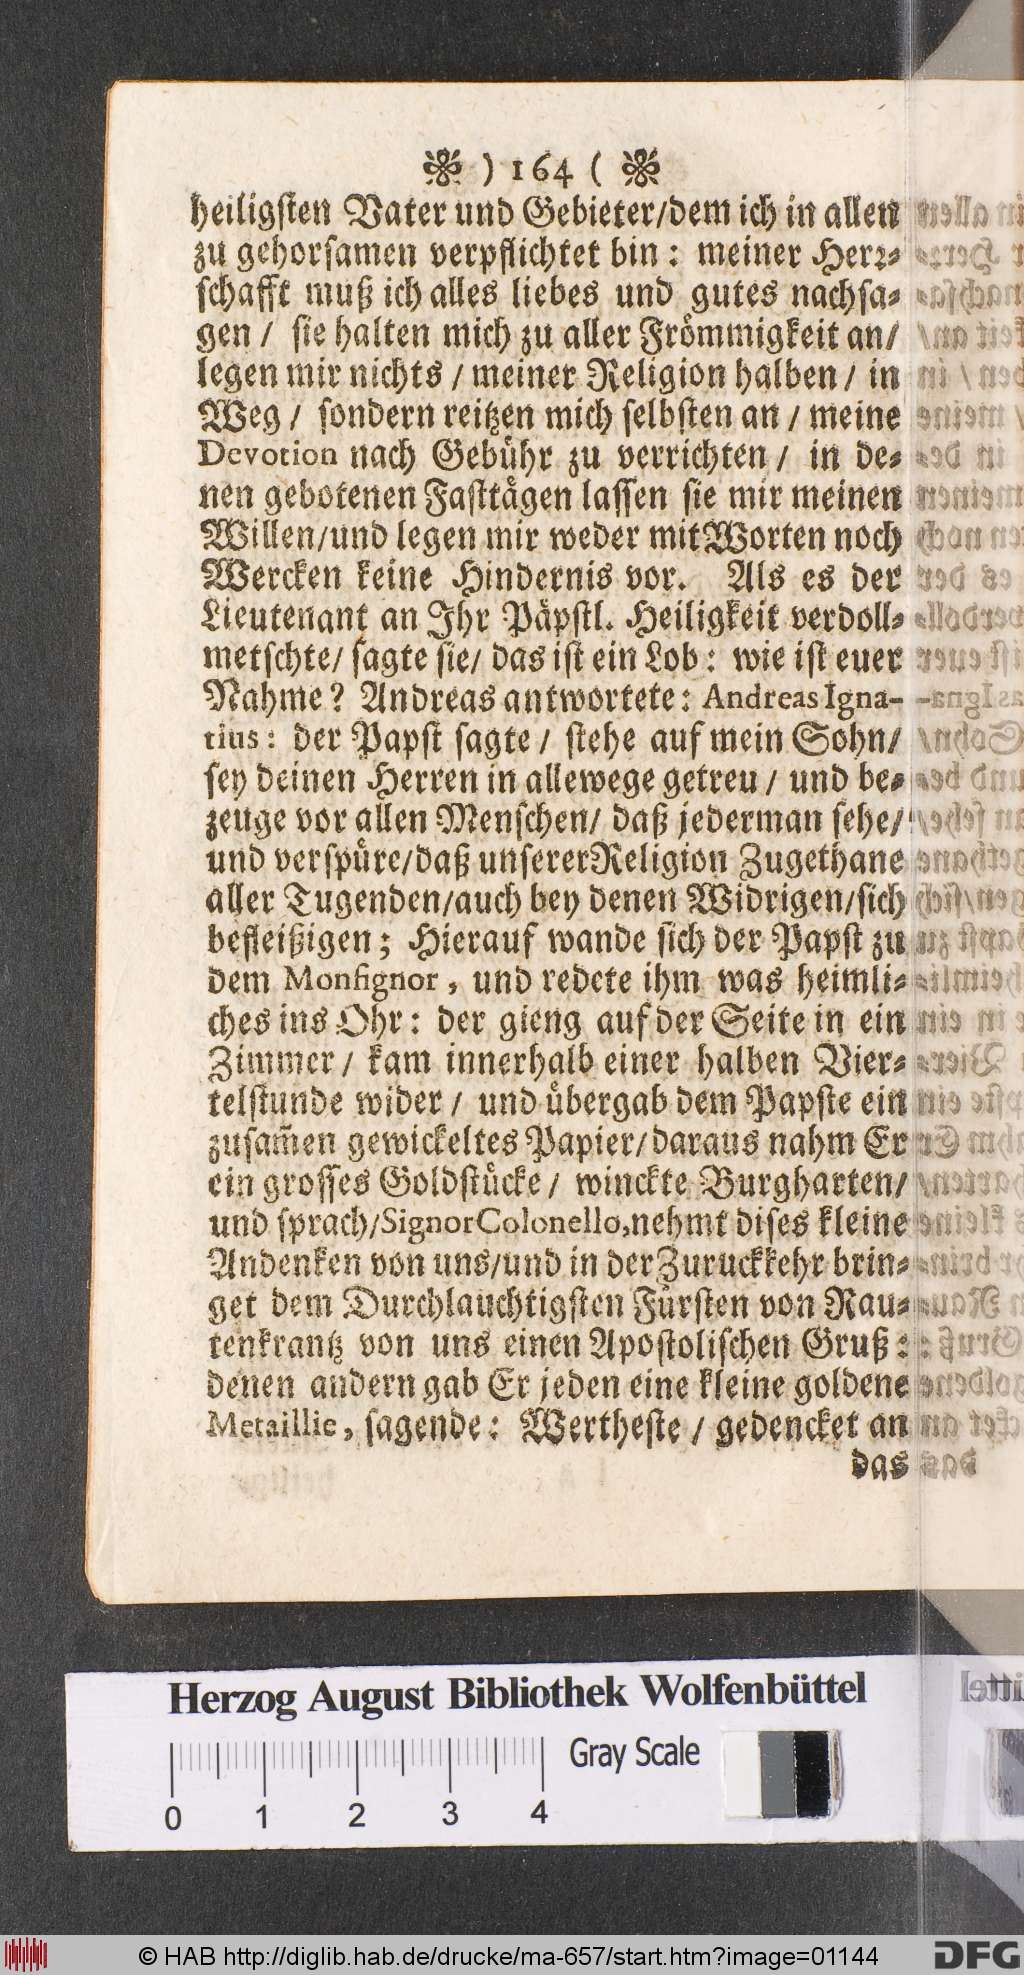 ) 164 (
heiligsten Vater und Gebieter/dem ich in allen
zu gehorsamen verpflichtet bin: meiner Herr-
schafft muß ich alles liebes und gutes nachsa-
gen / sie halten mich zu aller Frömmigkeit an/
legen mir nichts / meiner Religion halben / in
Weg / sondern reitzen mich selbsten an / meine
Devotion nach Gebühr zu verrichten / in de-
nen gebotenen Fasttägen lassen sie mir meinen
Willen/und legen mir weder mit Worten noch
Wercken keine Hindernis vor. Als es der
Lieutenant an Ihr Päpstl. Heiligkeit verdoll-
metschte/ sagte sie/ das ist ein Lob: wie ist euer
Nahme? Andreas antwortete: Andreas Igna-
tius: der Papst sagte / stehe auf mein Sohn/
sey deinen Herren in allewege getreu / und be-
zeuge vor allen Menschen/ daß jederman sehe/
und verspüre/daß unserer Religion Zugethane
aller Tugenden/auch bey denen Widrigen/sich
befleißigen; Hierauf wande sich der Papst zu
dem Monsignor, und redete ihm was heimli-
ches ins Ohr: der gieng auf der Seite in ein
Zimmer / kam innerhalb einer halben Vier-
telstunde wider / und übergab dem Papste ein
zusam̃en gewickeltes Papier/daraus nahm Er
ein grosses Goldstücke / winckte Burgharten/
und sprach/Signor Colonello, nehmt dises kleine
Andenken von uns/und in der Zuruckkehr brin-
get dem Durchlauchtigsten Fürsten von Rau-
tenkrantz von uns einen Apostolischen Gruß:
denen andern gab Er jeden eine kleine goldene
Metaillie, sagende: Wertheste / gedencket an
das
Herzog August Bibliothek Wolfenbüttel
Gray Scale
0 1 2 3 4
© HAB http://diglib.hab.de/drucke/ma-657/start.htm?image=01144
DFG